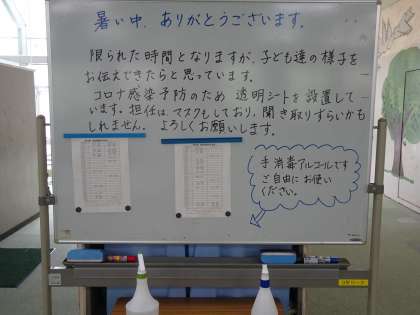 暑い中、ありがとうございます。
限られた時間となりますが、子ども達の様子を
お伝えできたらと思っています。
コロナ感染予防のため 透明シートを設置して
います。担任はマスクもしており、聞き取りずらいかも
しれません。よろしくお願いします。
手消毒アルコールです
ご自由にお使い
ください。